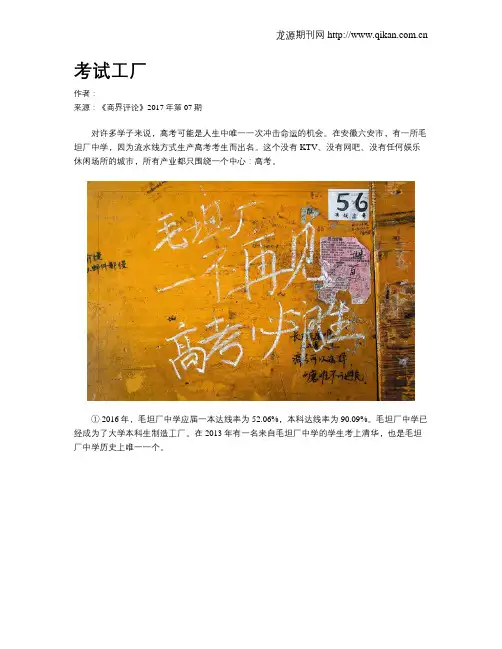 龙源期刊网 http://www.qikan.com.cn
考试工厂
作者：
来源：《商界评论》2017年第07期
对许多学子来说，高考可能是人生中唯一一次冲击命运的机会。在安徽六安市，有一所毛
坦厂中学，因为流水线方式生产高考考生而出名。这个没有KTV、没有网吧、没有任何娱乐
休闲场所的城市，所有产业都只围绕一个中心：高考。
56
毛坦厂
不再见
高考必胜
①2016年，毛坦厂中学应届一本达线率为52.06%，本科达线率为90.09%。毛坦厂中学已
经成为了大学本科生制造工厂。在2013年有一名来自毛坦厂中学的学生考上清华，也是毛坦
厂中学历史上唯一一个。